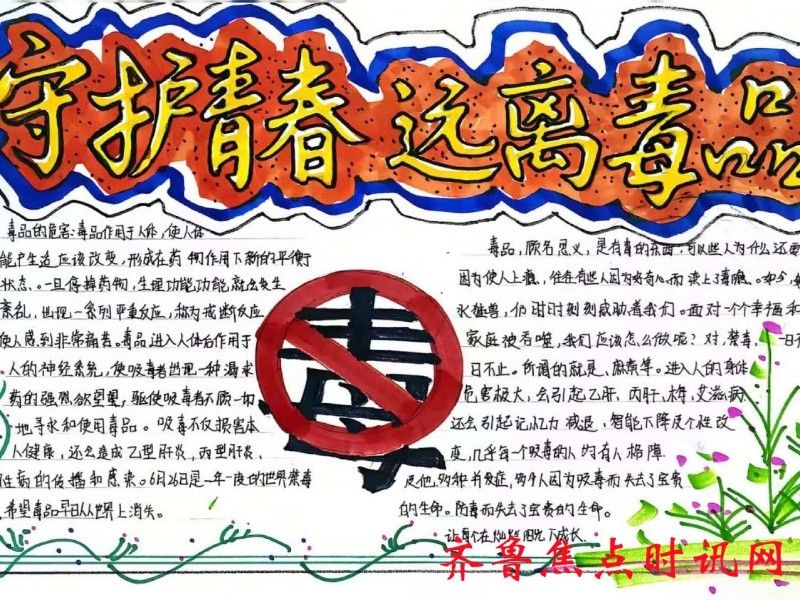 守护青春 远离毒品
毒品的危害:毒品作用于人体,使人体
能产生适应该改变,形成在药物作用下新的平衡
状态。一旦停掉药物,生理功能功能,就会发生
紊乱,出现一系列严重反应,称为戒断反应
使人感到非常痛苦。毒品进入人体后作用于
人的神经系统,使吸毒者出现一种渴求
药的强烈欲望,驱使吸毒者不顾一切
地寻求和使用毒品。吸毒不仅损害本
人健康,还会造成乙型肝炎,丙型肝炎,
性病的传播和感染。6月26日是一年一度的世界禁毒
希望毒品早日从世界上消失。
毒
毒品,顾名思义,是有毒的东西,可以些人为什么还要
因为使人上瘾,往往有些人因为好奇心而染上毒瘾。如今,如
水猛兽,仍时时刻刻威胁着我们。面对一个个幸福和
家庭被吞噬,我们应该怎么做呢?对,禁毒,一日
日不止。所谓的就是、麻黄等。进入人的身体
危害极大,会引起乙肝,丙肝,梅,艾滋病
还会引起记忆力减退,智能下降及个性改
变,几乎每一个吸毒的人均有人格障
及他,多种并发症,多少人因为吸毒而失去了宝贵
的生命。防毒而失去了宝贵的生命。
让每个在灿烂阳光下成长.
齐鲁焦点时讯网